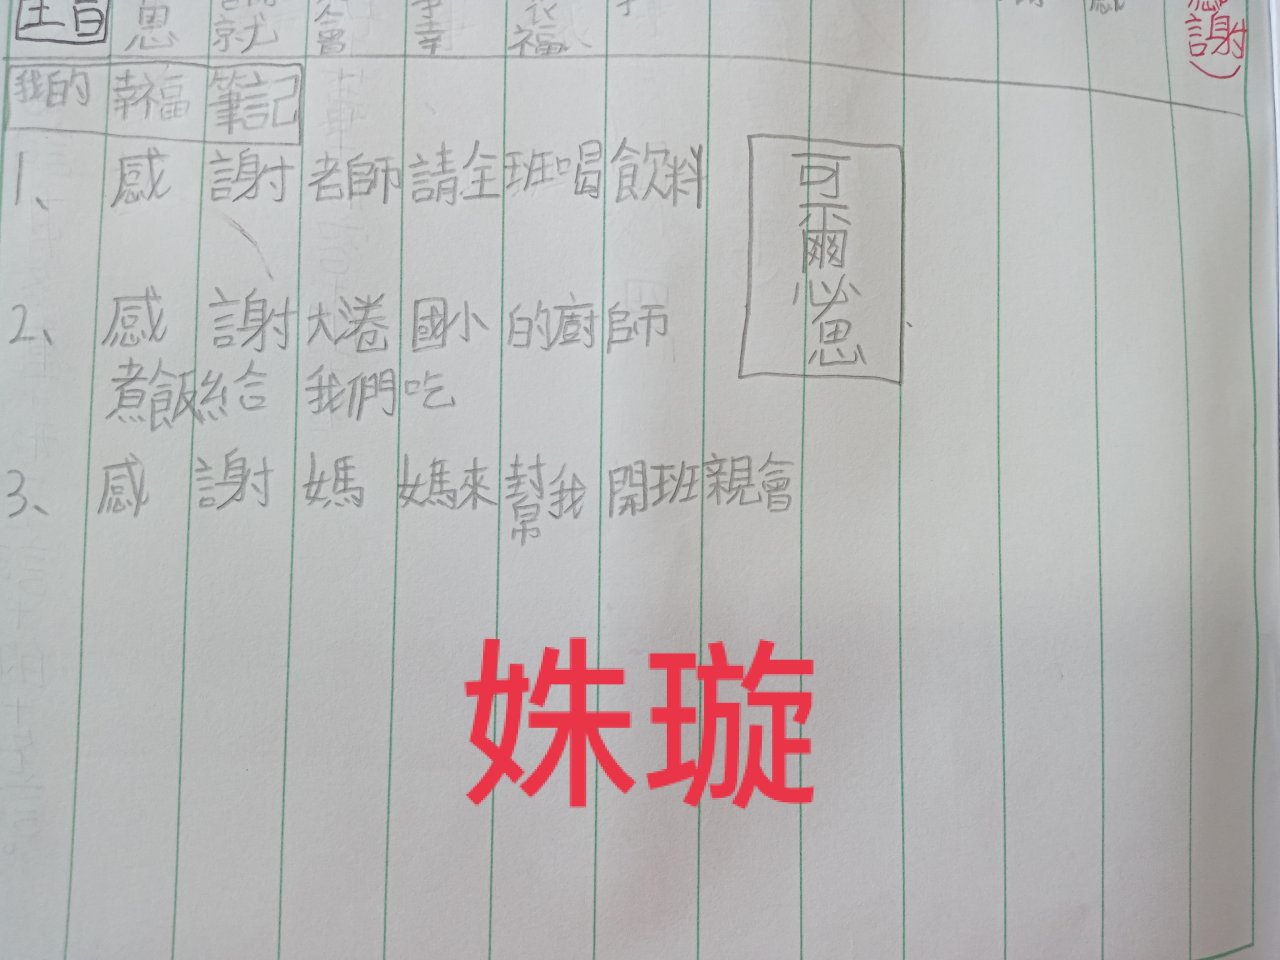 思 就 會 幸 福
謝)
我的幸福筆記
1、感謝老師請全班喝飲料
可爾必思
2、感謝大淃國小的廚師
煮飯給我們吃
3、感謝媽媽來幫我開班親會
姝璇